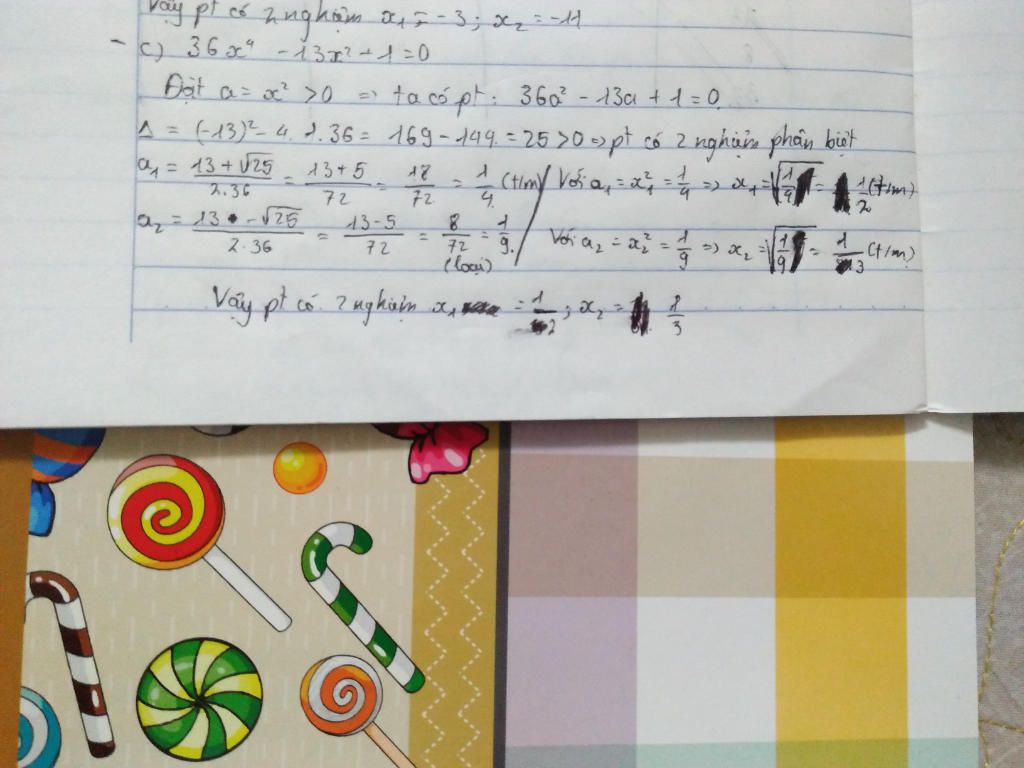 Vậy pt có 2 nghiệm x₁ = -3 ; x₂ = -11
- c) 36x⁴ - 13x² + 1 = 0
Đặt a = x² > 0 => ta có pt : 36a² - 13a + 1 = 0
Δ = (-13)² - 4. 1. 36 = 169 - 144 = 25 > 0 => pt có 2 nghiệm phân biệt
a₁ = (13 + √25)/(2.36) = (13 + 5)/72 = 18/72 = 1/4 (t/m) / Với a₁ = x₁² = 1/4 => x₁ = √(1/4) = 1/2 (t/m)
a₂ = (13 - √25)/(2.36) = (13 - 5)/72 = 8/72 = 1/9. (loại) / Với a₂ = x₂² = 1/9 => x₂ = √(1/9) = 1/3 (t/m)
Vậy pt có 2 nghiệm x₁ = 1/2 ; x₂ = 1/3